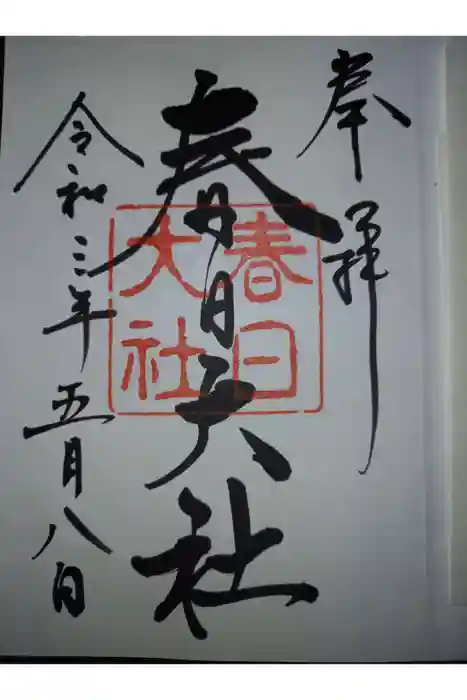 奉拝
春日大社
春日
大社
令和三年五月八日